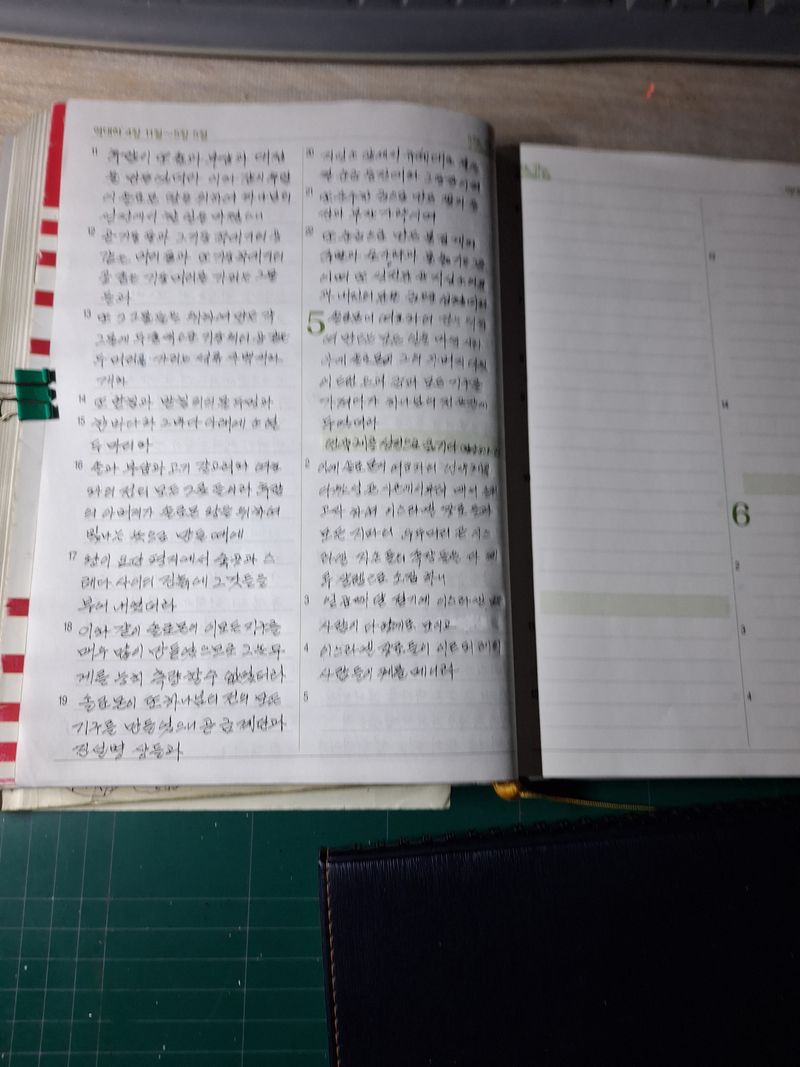 역대하 4장 11절~5장 5절
11 후람이 또 솥과 부삽과 대접
을 만들었더라 이와 같이 후람
이 솔로몬 왕을 위하여 하나님의
성전에서 할 일을 마쳤으니
12 곧 기둥 둘과 그 기둥 꼭대기의 공
같은 머리 둘과 또 기둥 꼭대기의
공 같은 기둥 머리를 가리는 그물
둘과
13 또 그 그물들을 위하여 만든 각
그물에 두 줄씩으로 기둥 위의 공 같은
두 머리를 가리는 석류 사백 개와
14 또 받침과 받침 위의 물두멍과
15 한 바다와 그 바다 아래에 소 열
두 마리와
16 솥과 부삽과 고기 갈고리와 여호
와의 전의 모든 그릇들이라 후람
의 아버지가 솔로몬 왕을 위하여
빛나는 놋으로 만들 때에
17 왕이 요단 평지에서 숙곳과 스
레다 사이의 진흙에 그것들을
부어 내었더라
18 이와 같이 솔로몬이 이 모든 기구를
매우 많이 만들었으므로 그 놋 무
게를 능히 측량할 수 없었더라
19 솔로몬이 또 하나님의 전의 모든
기구를 만들었으니 곧 금 제단과
진설병 상들과
20 지성소 앞에서 규례대로 불을
켤 순금 등잔대와 그 등잔이며
21 또 순수한 금으로 만든 꽃과 등
잔과 부젓가락이며
22 또 순금으로 만든 불집게와
주발과 숟가락과 불 옮기는 그릇
이며 또 성전 문 곧 지성소의 문
과 내전의 문을 금으로 입혔더라
5 솔로몬이 여호와의 전을 위하
여 만드는 모든 일을 마친지라
이에 솔로몬이 그의 아버지 다윗
이 드린 은과 금과 모든 기구를
가져다가 하나님의 전 곳간에
두었더라
언약궤를 성전으로 옮기다
2 이에 솔로몬이 여호와의 언약궤를
다윗 성 곧 시온에서부터 메어 올리
고자 하여 이스라엘 장로들과
모든 지파의 우두머리 곧 이스
라엘 자손의 족장들을 다 예
루살렘으로 소집하니
3 일곱째 달 절기에 이스라엘 모든
사람들이 다 왕에게로 모이고
4 이스라엘 장로들이 이르매 레위
사람들이 궤를 메니라
5
6
2
3
4
14